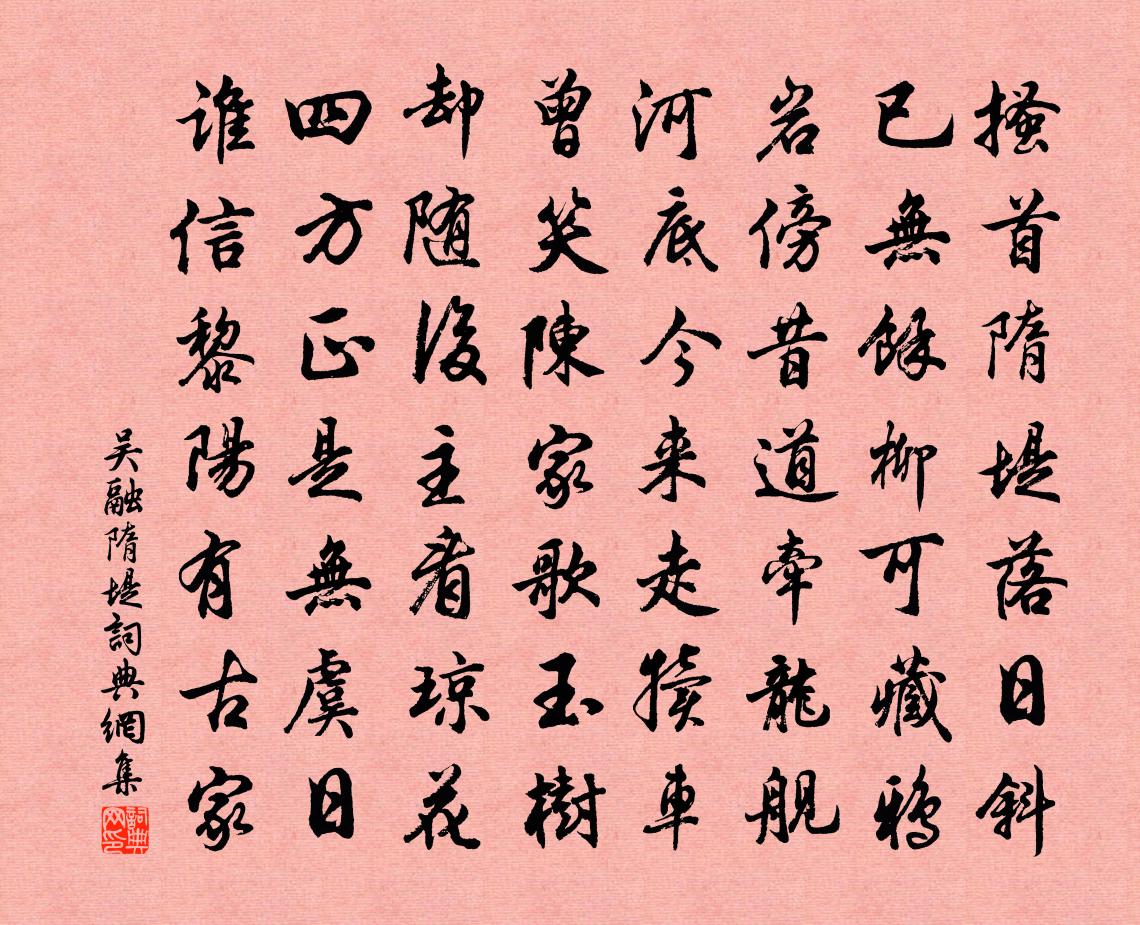 搔首隋堤落日斜
已無餘柳可藏鴉
岩傍昔道牽龍舰
河底今来走犢車
曾笑陳家歌玉樹
却随後主看琼花
四方正是無虞日
谁信黎陽有古家
吴融隋堤詞典網集
詞典網印